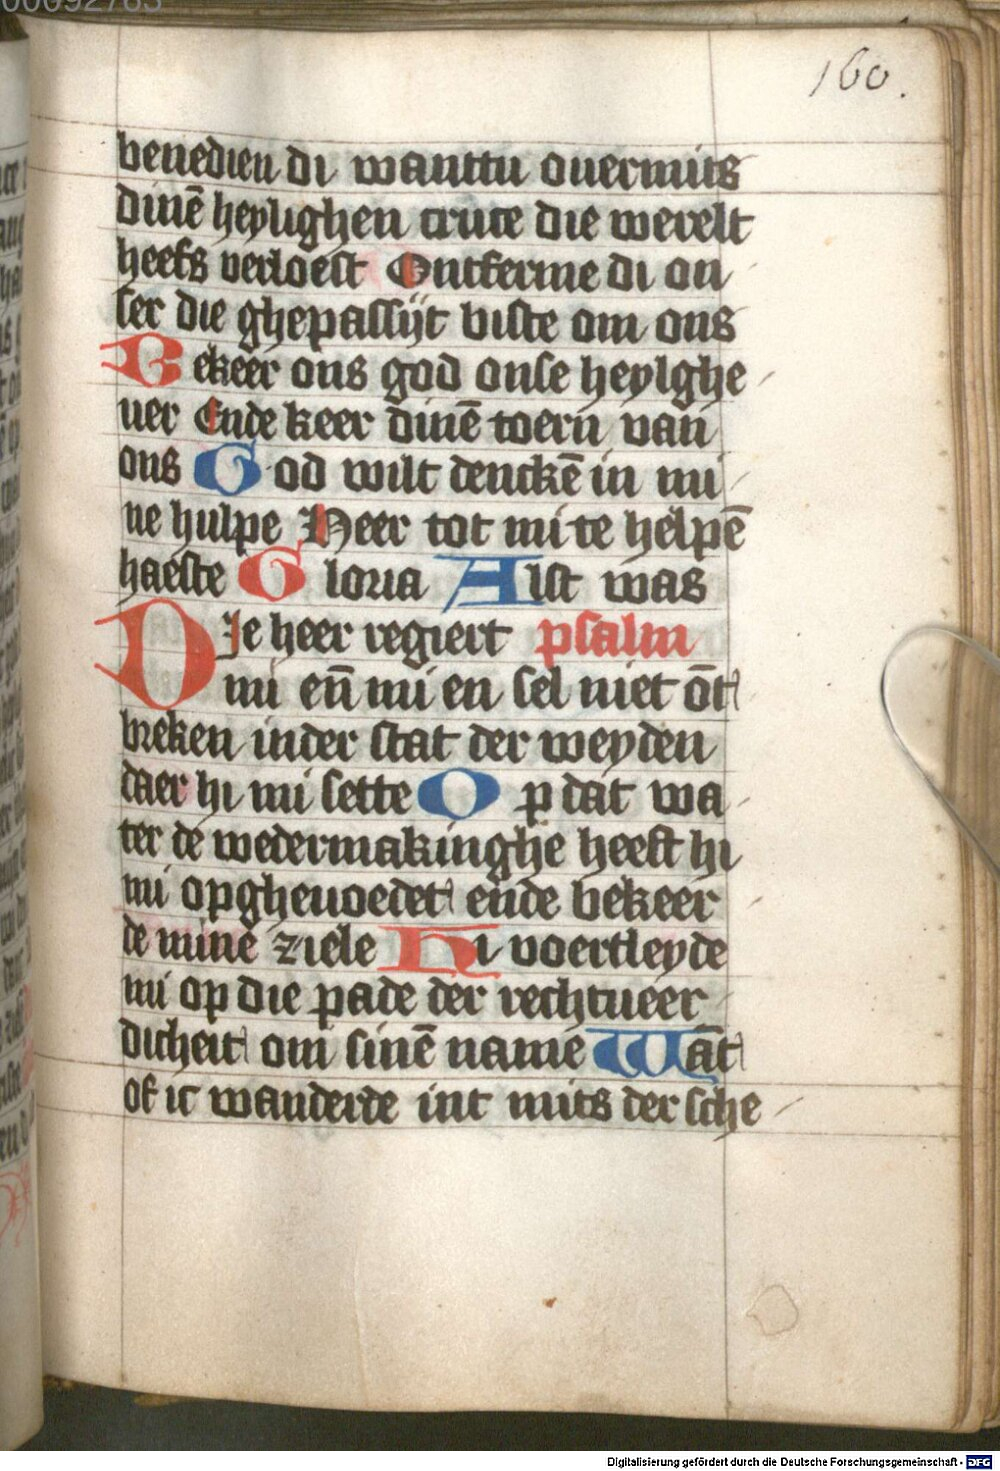 00092783
160.
benedien di wanttu ouermits
dinē heylighen cruce die werelt
heefs verloest Ontferme di on
ser die ghepassijt biste om ons
Bekeer ons god onse heylghe
uer Ende keer dinē toern van
ons God wilt denckē in mi
ne hulpe Heer tot mi te helpē
haeste Gloria Alst was
Die heer regiert psalm
mi eñ mi en sel niet ōt
breken inder stat der weyden
daer hi mi sette Op dat wa
ter de wedermakinghe heeft hi
mi opgheuoedet ende bekeer
de mine ziele Hi voertleyde
mi op die pade der rechtueer
dicheit om sinē name Wāt
of ic wanderde int mits der sche
Digitalisierung gefördert durch die Deutsche Forschungsgemeinschaft - DFG